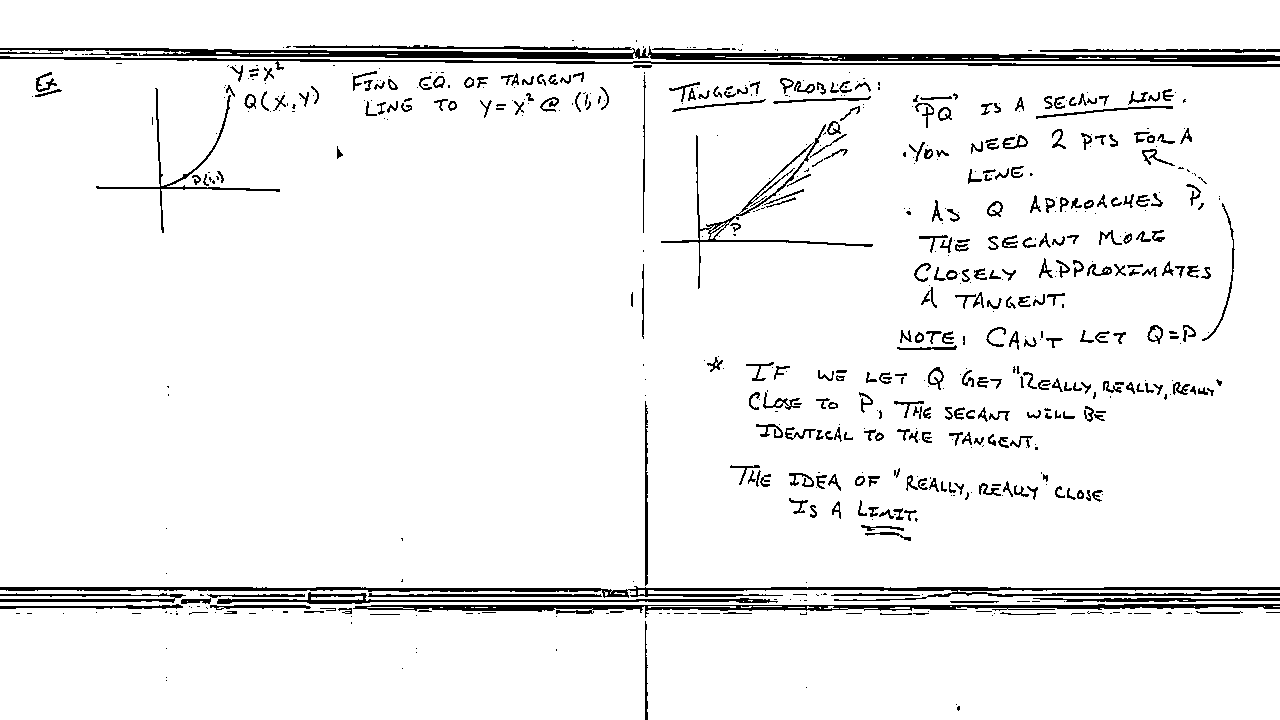 Ex
Y=X²
Q(X,Y)
P(1,1)
FIND EQ. OF TANGENT
LINE TO Y=X² @ (1,1)
TANGENT PROBLEM:
Q
P
PQ IS A SECANT LINE.
• YOU NEED 2 PTS FOR A
LINE.
• AS Q APPROACHES P,
THE SECANT MORE
CLOSELY APPROXIMATES
A TANGENT.
NOTE: CAN'T LET Q=P
* IF WE LET Q GET "REALLY, REALLY, REALLY"
CLOSE TO P, THE SECANT WILL BE
IDENTICAL TO THE TANGENT.
THE IDEA OF "REALLY, REALLY" CLOSE
IS A LIMIT.